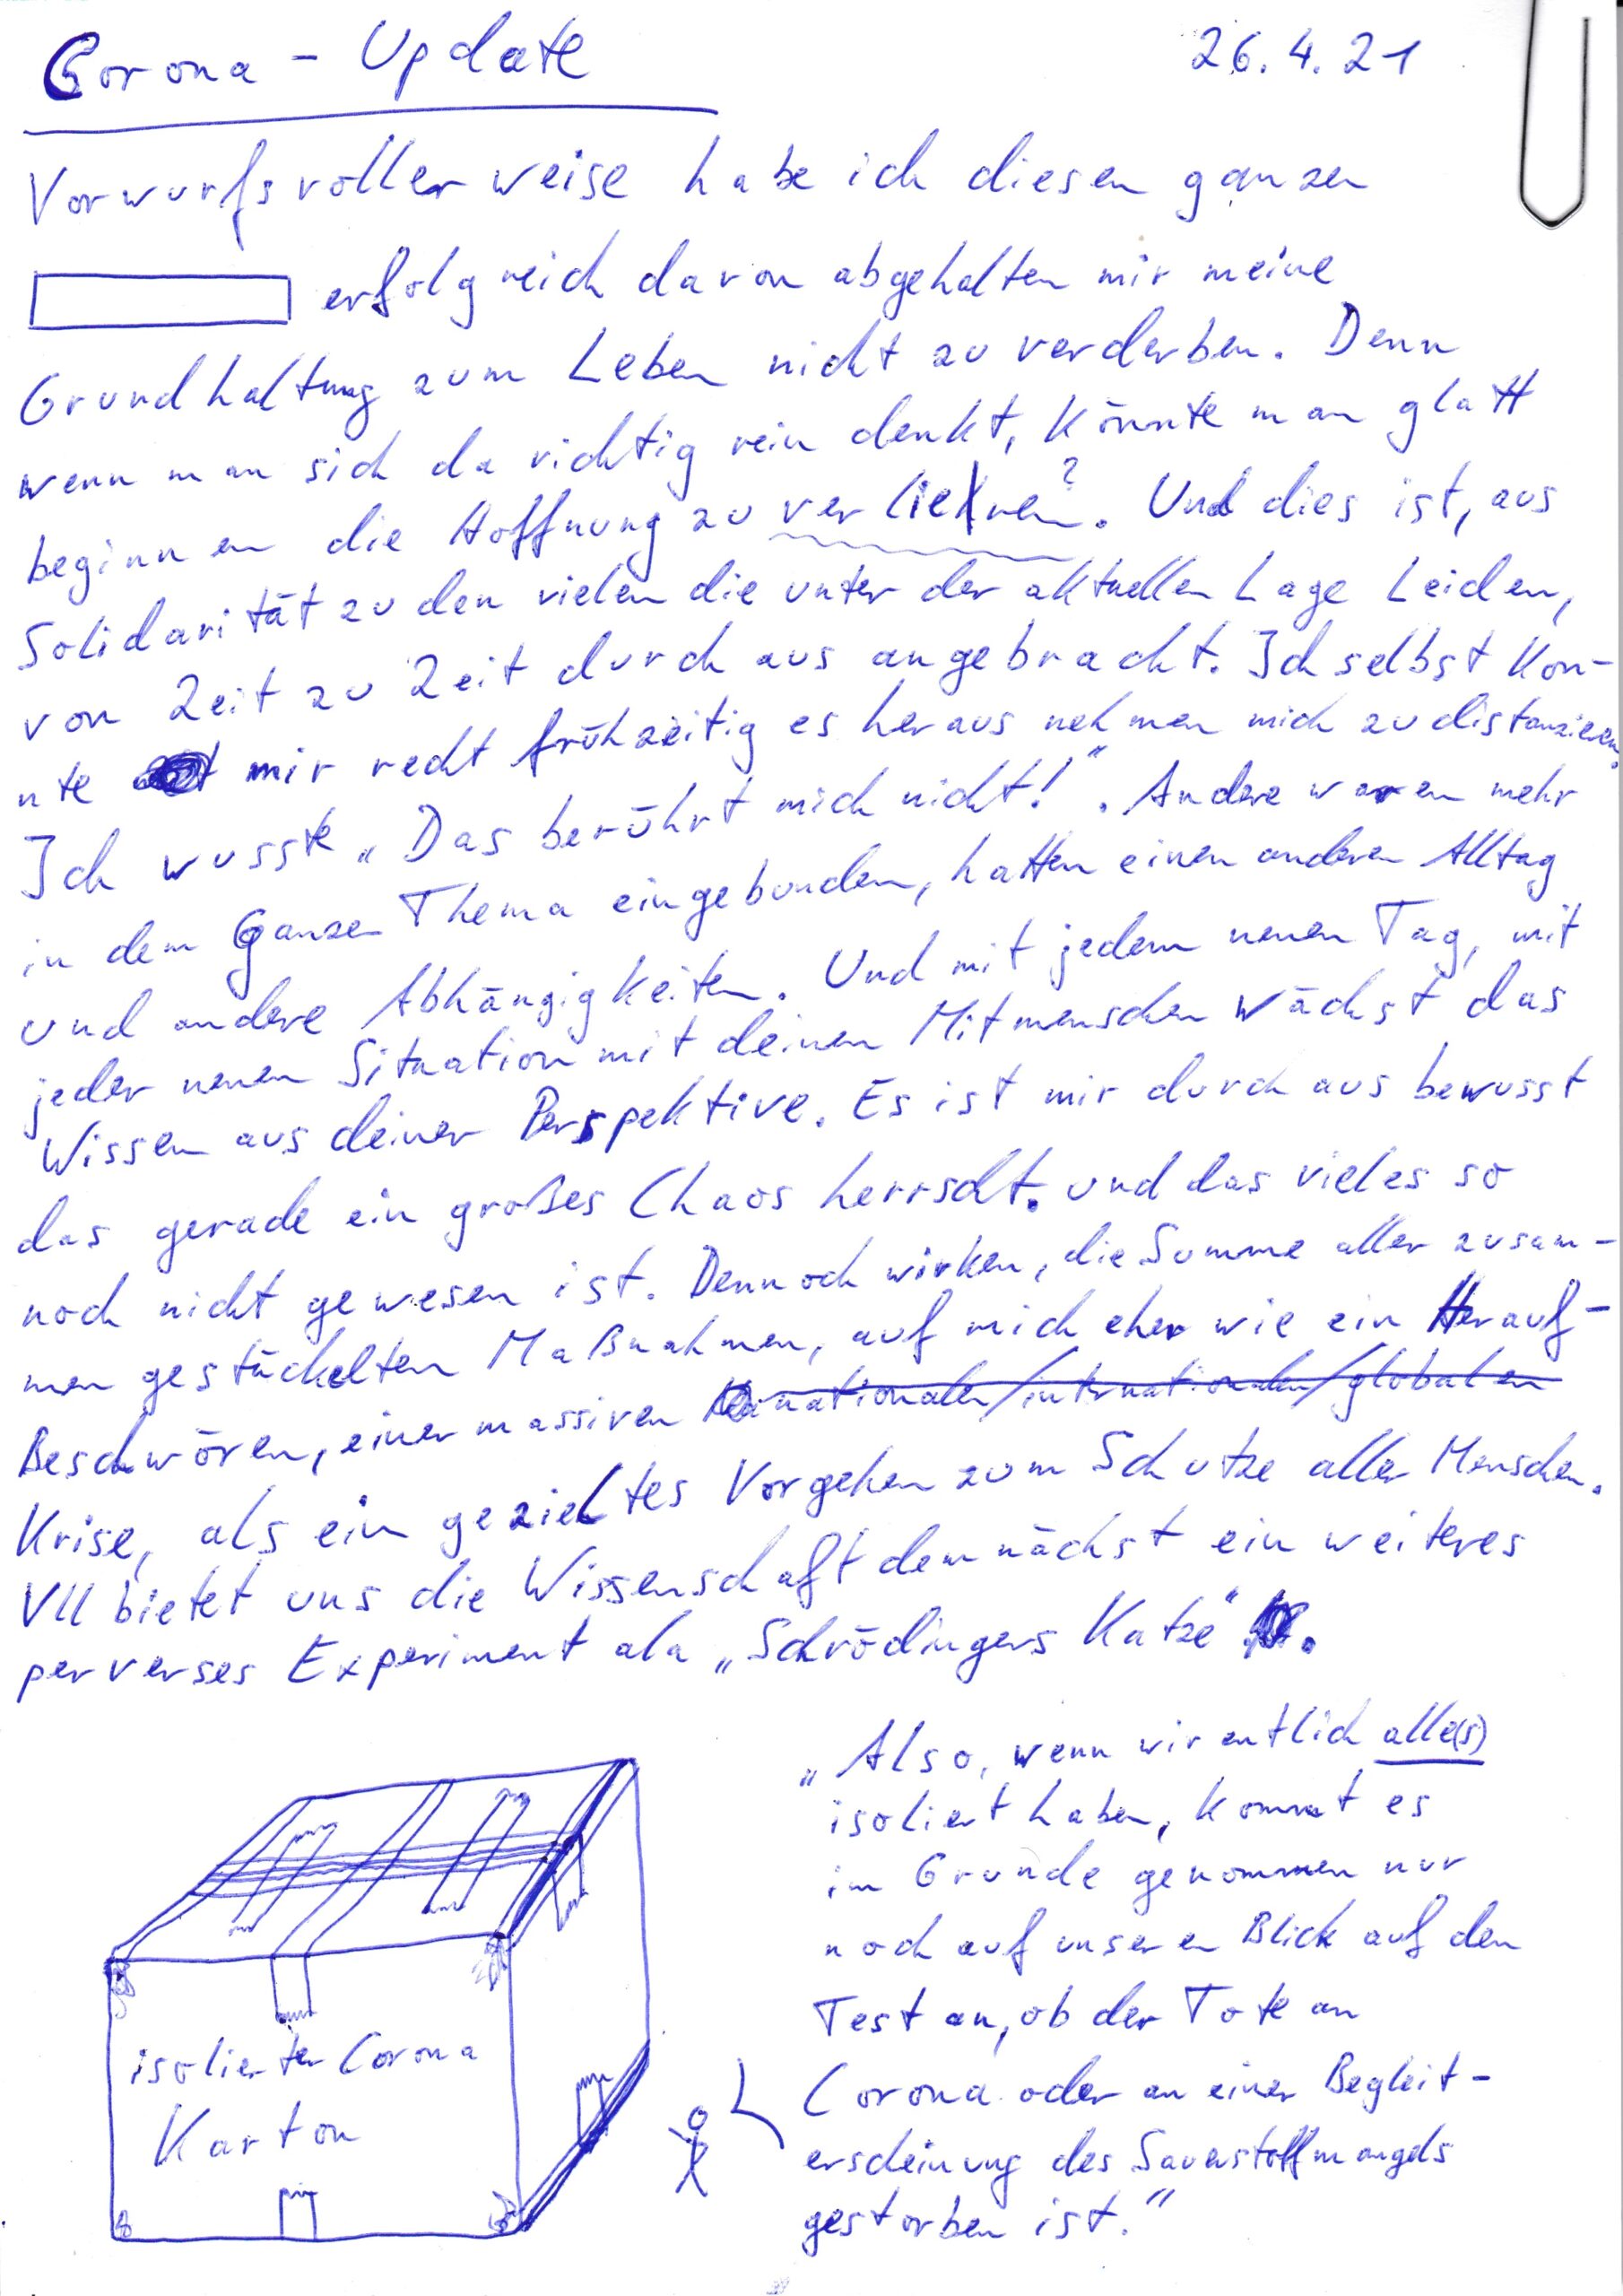 Corona - Update
26.4.21
Vorwurfsvollerweise habe ich diesen ganzen
erfolgreich davon abgehalten mir meine
Grundhaltung zum Leben nicht zu verderben. Denn
wenn man sich da richtig rein denkt, könnte man glatt
beginnen die Hoffnung zu verlieren?. Und dies ist, aus
Solidarität zu den vielen die unter der aktuellen Lage Leiden,
von Zeit zu Zeit durch aus angebracht. Ich selbst kon-
nte mir recht frühzeitig es heraus nehmen mich zu distanzieren.
Ich wusste „Das berührt mich nicht!“. Andere waren mehr
in dem Ganzen Thema eingebunden, hatten einen anderen Alltag
und andere Abhängigkeiten. Und mit jedem neuen Tag, mit
jeder neuen Situation mit deinen Mitmenschen wächst das
Wissen aus deiner Perspektive. Es ist mir durch aus bewusst
das gerade ein großes Chaos herrscht. und das vieles so
noch nicht gewesen ist. Dennoch wirken, die Summe aller zusam-
men gestückelten Maßnahmen, auf mich eher wie ein Herauf-
Beschwören, einer massiven nationalen/internationalen/globalen
Krise, als ein gezieltes Vorgehen zum Schutze aller Menschen.
Vll bietet uns die Wissenschaft demnächst ein weiteres
perverses Experiment ala „Schrödingers Katze“.
„Also, wenn wir entlich alle(s)
isoliert haben, kommt es
im Grunde genommen nur
noch auf unseren Blick auf den
Test an, ob der Tote an
Corona oder an einer Begleit-
erscheinung des Sauerstoffmangels
gestorben ist.“
isolierter Corona
Karton